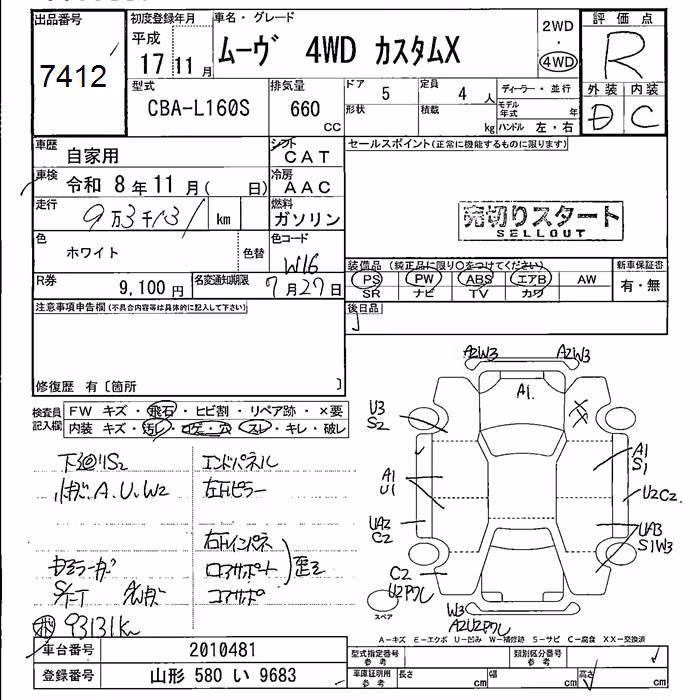 出品番号
7412
初度登録年月
平成
17 11 月
車名・グレード
ムーヴ 4WD カスタムX
2WD
・
4WD
評価点
R
外装 内装
D C
型式
CBA-L160S
排気量
660
CC
ドア 5
定員 4 人
形状
積載 kg
ディーラー・並行
モデル年式 年
ハンドル 左・右
車歴
自家用
シフト
CAT
セールスポイント(正常に機能するものに限ります)
車検 令和 8 年 11 月( 日)
冷房
AAC
走行 9万3千131 km
燃料
ガソリン
売切りスタート
SELLOUT
色
ホワイト
色替
色コード
W16
装備品 (純正品に限り○をつけてください)
PS PW ABS エアB AW
SR ナビ TV カワ
新車保証書
有・無
R券
9,100 円
名変通知期限
7月27日
後日品
注意事項申告欄(不具合内容等は具体的に記入して下さい)
修復歴 有〔箇所 〕
検査員
記入欄
FW キズ・飛石・ヒビ割・リペア跡・×要
内装 キズ・汚レ・コゲ・穴・スレ・キレ・破レ
下廻リS2
A.U.W2
エンドパネル
左Rピラー
右Rインパネ
ロアサポート
コアサポ
歪ミ
93131km
A2W3
A2W3
A1
U3
S2
A1
U1
A1
S1
U2C2
UA2
C2
UA3
S1W3
C2
W3
スペア
A-キズ E-エクボ U-凹み W-補修跡 S-サビ C-腐食 XX-交換済
車台番号 2010481
登録番号 山形 580 い 9683
型式指定番号
参考
類別区分番号
参考
車庫証明用
参考
長さ cm
幅 cm
高さ cm